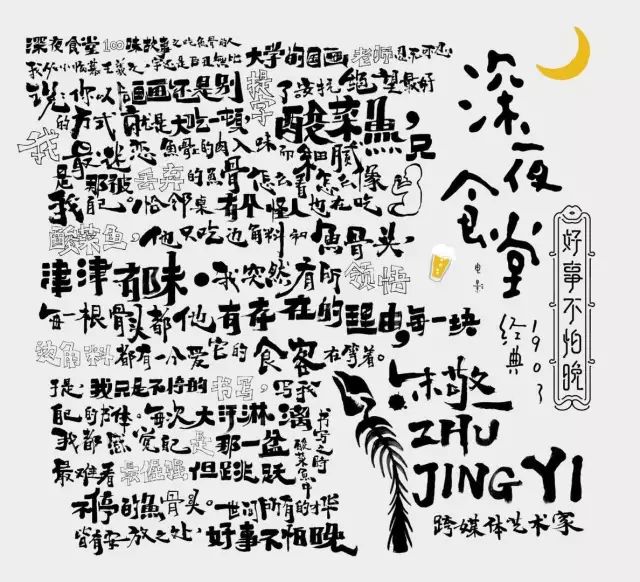 深夜食堂100味故事之吃魚骨的人
大学的国画老师
说:你以后画画还是别提字了
抵抗绝望最好
的方式就是大吃一顿,酸菜魚,
我最迷恋魚骨上的肉入味而细腻
只是那被丢弃的魚骨,怎么看怎么像
我自己。恰邻桌有个怪人也在吃
酸菜鱼,他只吃边角料和魚骨头,
津津有味。我突然有所领悟
每一根骨头都他有存在的理由,每一块
边角料都有一个爱它的食客在等着。
于是,我只是不恰的书写,写我
自己的书体。每次大汗淋漓
书写之时
我都感觉自己是那一盆
酸菜魚中
最难看最倔强但跳跃
不停的魚骨头。世间所有的才华
皆有安放之处,好事不怕晚
深夜食堂
电影
经典1903
好事不怕晚
朱敬一
ZHU
JING YI
跨媒体艺术家